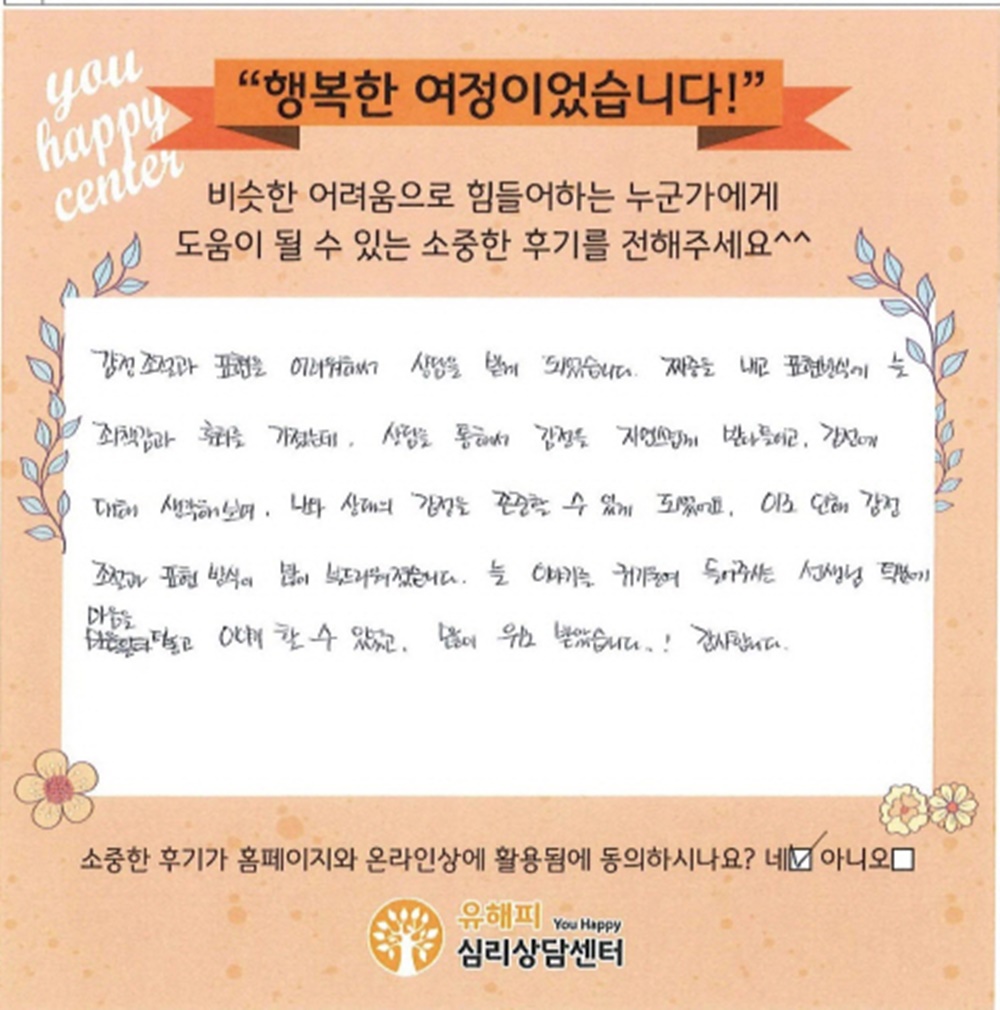 you
happy
center
“행복한 여정이었습니다!”
비슷한 어려움으로 힘들어하는 누군가에게
도움이 될 수 있는 소중한 후기를 전해주세요^^
감정 조절과 표현을 어려워해서 상담을 받게 되었습니다. 짜증을 내고 표현방식에 늘
죄책감과 후회를 가졌는데, 상담을 통해서 감정을 자연스럽게 받아들이고, 감정에
대해 생각해보며, 나와 상대의 감정을 존중할 수 있게 되었어요. 이로 인해 감정
조절과 표현 방식이 많이 부드러워졌습니다. 늘 이야기를 귀기울여 들어주시는 선생님 덕분에
마음을
털어놓고 이야기 할 수 있었고, 많이 위로 받았습니다.! 감사합니다.
소중한 후기가 홈페이지와 온라인상에 활용됨에 동의하시나요? 네 아니오
유해피 You Happy
심리상담센터